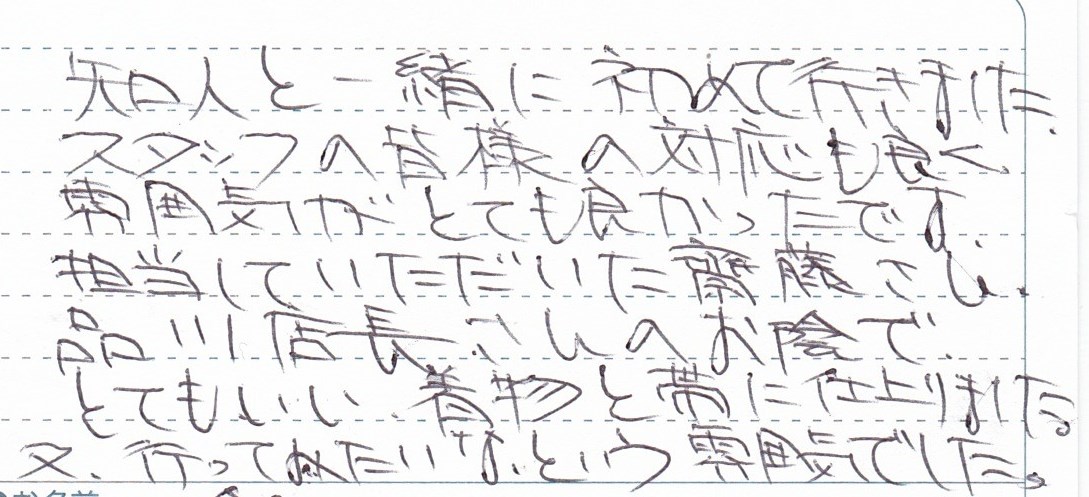 知人と一緒に初めて行きました。
スタッフの皆様の対応も良く、
雰囲気がとても良かったです。
担当していただいた齋藤さん、
品川店長さんのお陰で、
とてもいい着物と帯に仕上りました。
又、行ってみたいな、という雰囲気でした。
お名前